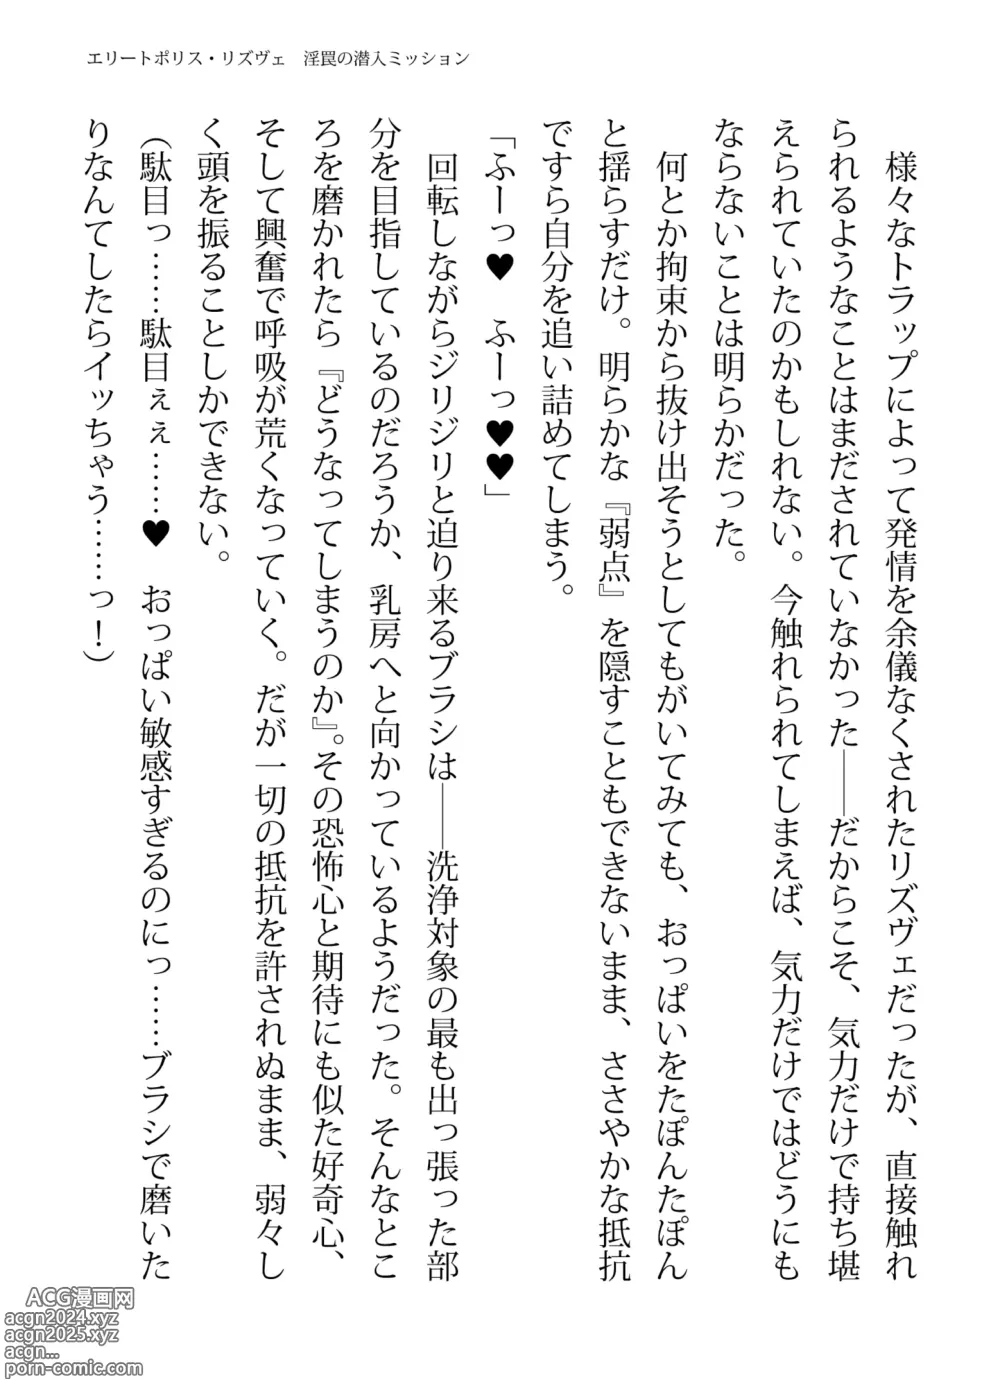 エリートポリス・リズヴェ　淫罠の潜入ミッション
　様々なトラップによって発情を余儀なくされたリズヴェだったが、直接触れ
られるようなことはまだされていなかった――だからこそ、気力だけで持ち堪
えられていたのかもしれない。今触れられてしまえば、気力だけではどうにも
ならないことは明らかだった。
　何とか拘束から抜け出そうとしてもがいてみても、おっぱいをたぽんたぽん
と揺らすだけ。明らかな『弱点』を隠すこともできないまま、ささやかな抵抗
ですら自分を追い詰めてしまう。
「ふーっ♥　ふーっ♥♥」
　回転しながらジリジリと迫り来るブラシは――洗浄対象の最も出っ張った部
分を目指しているのだろうか、乳房へと向かっているようだった。そんなとこ
ろを磨かれたら『どうなってしまうのか』。その恐怖心と期待にも似た好奇心、
そして興奮で呼吸が荒くなっていく。だが一切の抵抗を許されぬまま、弱々し
く頭を振ることしかできない。
（駄目っ……駄目ぇぇ……♥　おっぱい敏感すぎるのにっ……ブラシで磨いた
りなんてしたらイッちゃう……っ！）
ACG漫画网
acgn2024.xyz
acgn2025.xyz
acgn...
porn-comic.com